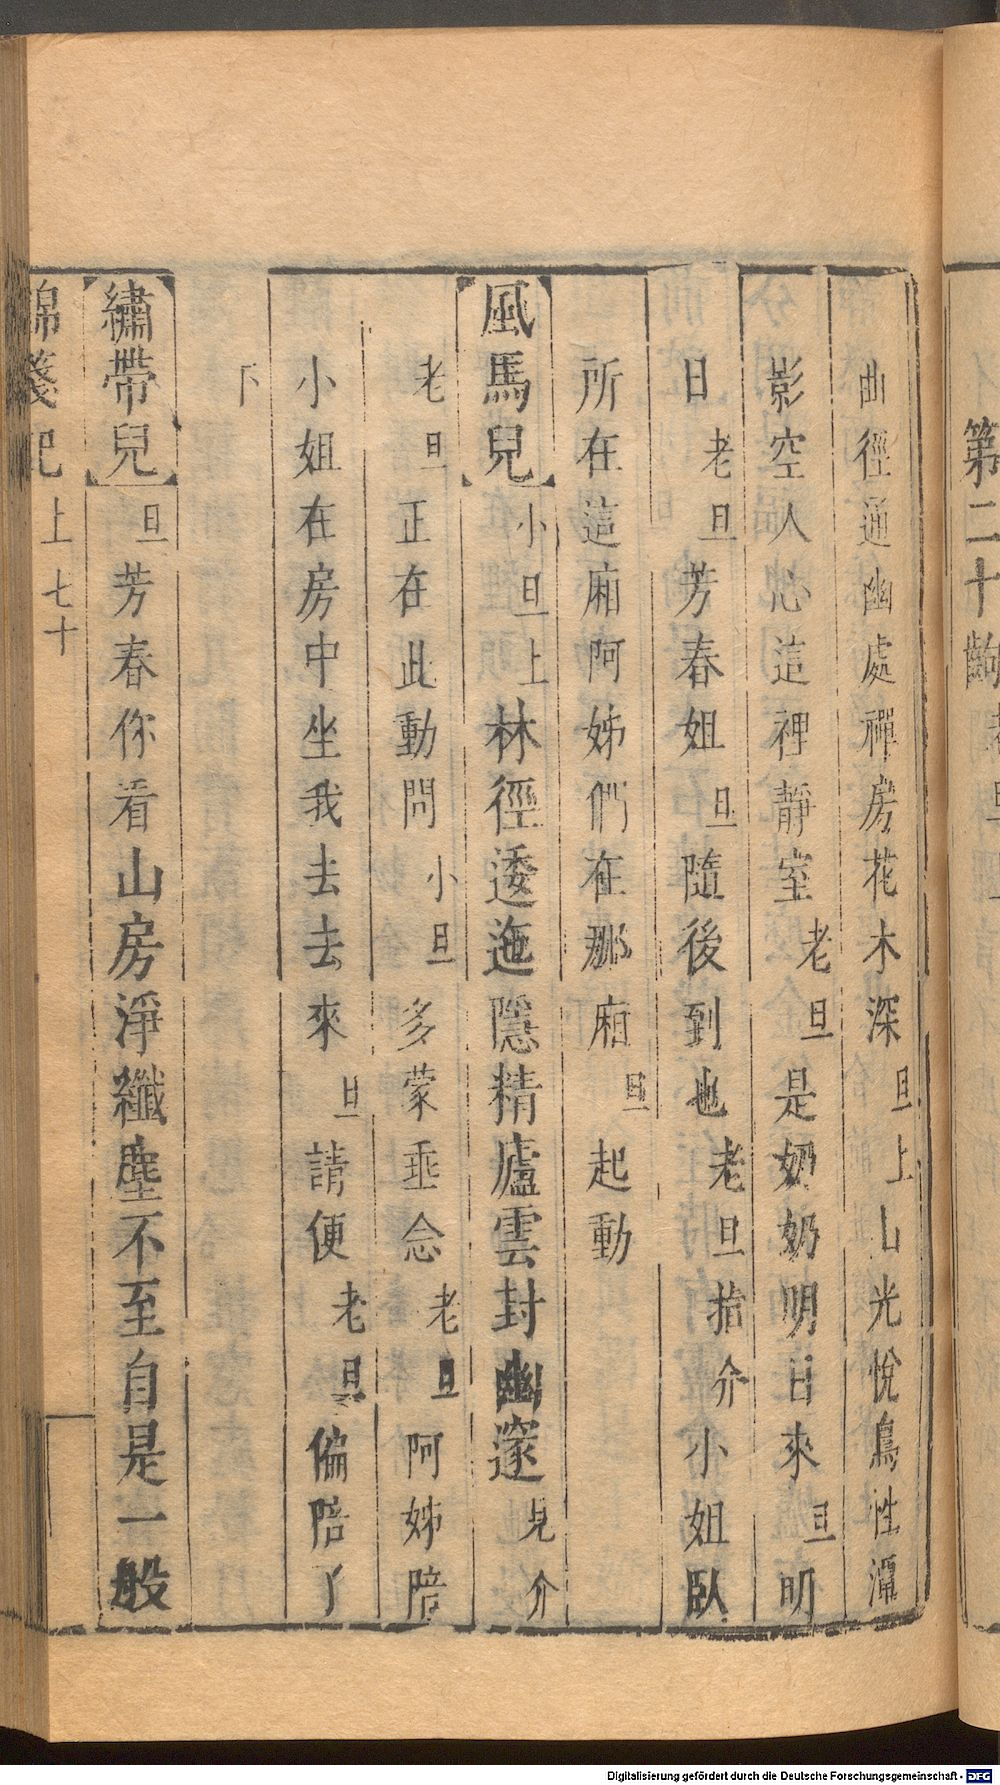 第二十齣
曲徑通幽處禪房花木深旦上山光悅鳥性潭
影空人心這裡靜室老旦是奶奶明日來旦明
日老旦芳春姐旦隨後到也老旦指介小姐臥
所在這廂阿姊們在那廂旦起動
風馬兒小旦上林徑逶迤隱精廬雲封幽邃見介
老旦正在此動問小旦多蒙垂念老旦阿姊陪
小姐在房中坐我去去來旦請便老旦偏陪了
下
繡帶兒旦芳春你看山房淨纖塵不至自是一般
錦箋記上七十
Digitalisierung gefördert durch die Deutsche Forschungsgemeinschaft - DFG